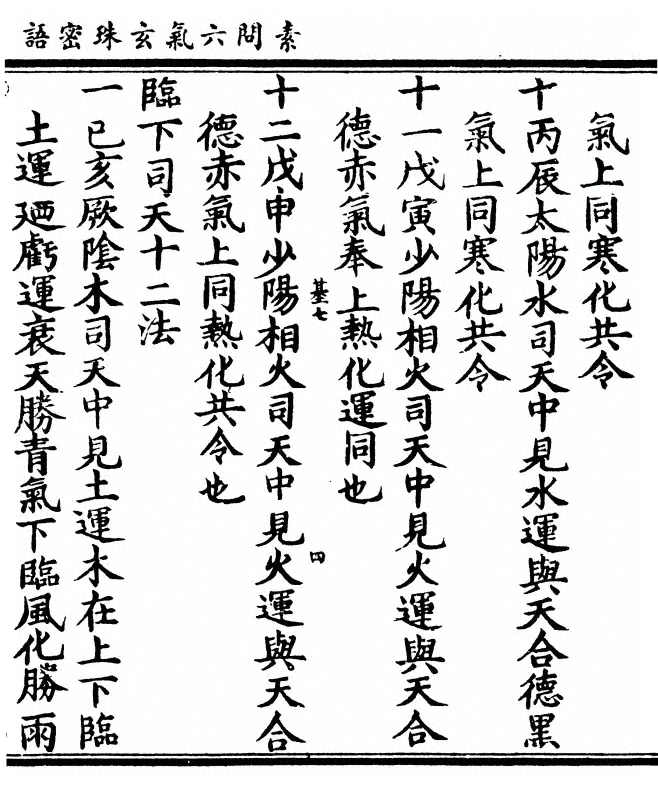 素問六氣玄珠密語
氣上同寒化共令
十丙辰太陽水司天中見水運與天合德黑
氣上同寒化共令
十一戊寅少陽相火司天中見火運與天合
德赤氣奉上熱化運同也
基七
四
十二戊申少陽相火司天中見火運與天合
德赤氣上同熱化共令也
臨下司天十二法
一己亥厥陰木司天中見土運木在上下臨
土運廼虧運衰天勝青氣下臨風化勝雨